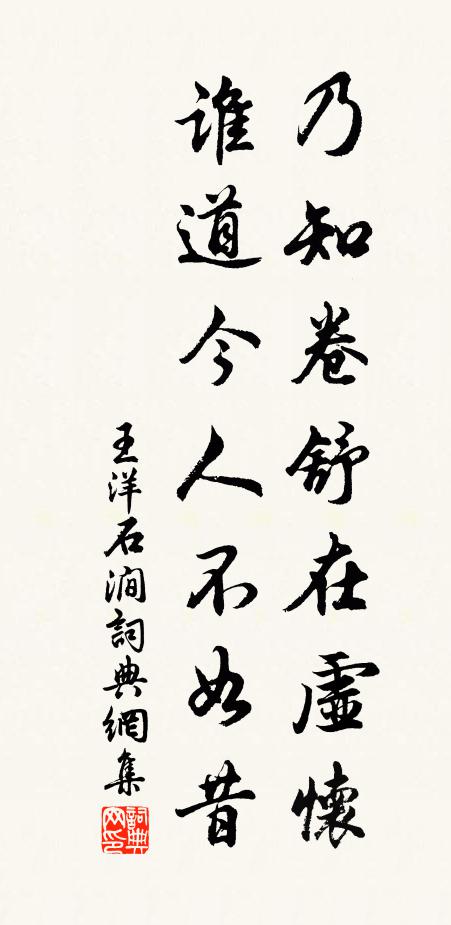 乃知卷舒在虛懷
誰道今人不如昔
王洋石澗詞典網集
詞典网印